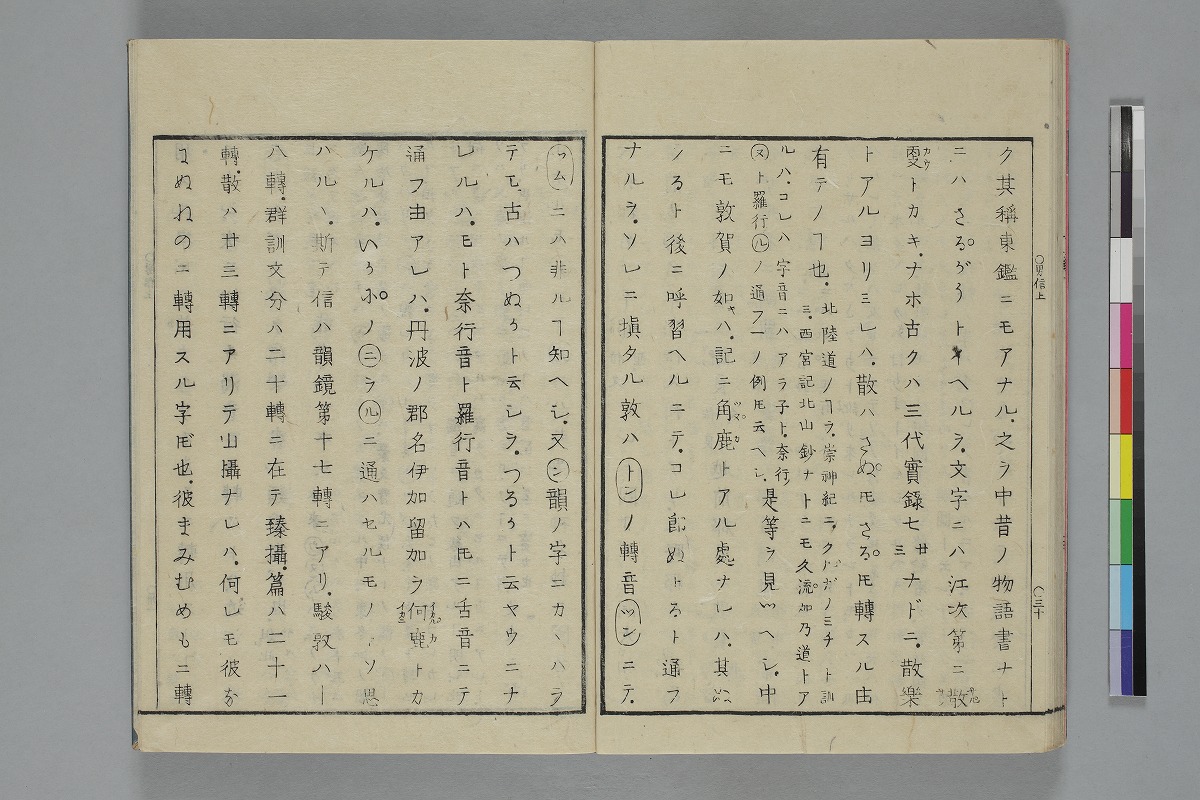 ク其稱東鑑ニモアナル．之ヲ中昔ノ物語書ナト
ニハさるがうトキヘルヲ．文字ニハ江次第ニ散
トカキ．ナホ古クハ三代實録七廿三ナドニ．散樂
トアルヨリミレハ．散ハさぬ𪜈さる𪜈轉スル由
有テノヿ也．北陸道ノヿヲ．崇神紀ニ．クガノミチト訓
三．西宮記北山鈔ナトニモ久流加乃道トア
ルハ．コレハ字音ニハアラ子ト．奈行
ヌト羅行ルノ通フ一ノ例𪜈云ヘシ．是等ヲ見ツヘシ．中
ニモ敦賀ノ如キハ．記ニ角鹿トアル處ナレハ．其
ノるト後ニ呼習ヘルニテ．コレ即ぬトるト通フ
ナルヲ．ソレニ填タル敦ハトンノ轉音ツンニテ．
○男信上
三十
ツムニハ非ルヿ知ヘシ．又ン韻ノ字ニカヽハラ
テモ．古ハつぬうト云シヲ．つるうト云ヤウニナ
レルハ．モト奈行音ト羅行音トハ𪜈ニ舌音ニテ
通フ由アレハ．丹波ノ郡名伊加留加ヲ何鹿トカ
ケルハ．いうホノニヲルニ通ハセルモノヽソ思
ハルヽ．斯テ信ハ韻鏡第十七轉ニアリ．駿敦ハ十
八轉．群訓文分ハ二十轉ニ在テ臻攝．篇ハ二十一
轉．散ハ廿三轉ニアリテ山攝ナレハ．何レモ彼な
にぬねのニ轉用スル字𪜈也．彼まみむめもニ轉